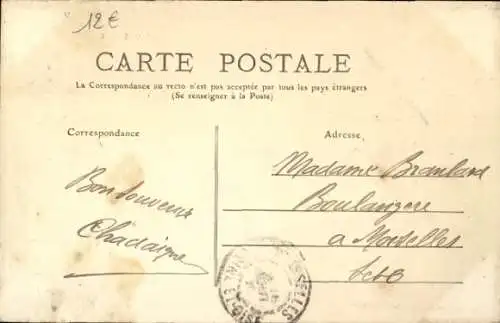 12€
CARTE POSTALE
La Correspondance au recto n'est pas acceptée par tous les pays étrangers
(Se renseigner à la Poste)
Correspondance
Adresse
Bonsouvenir
Chadaigne
Madame Branlard
Boulangere
a Morselles